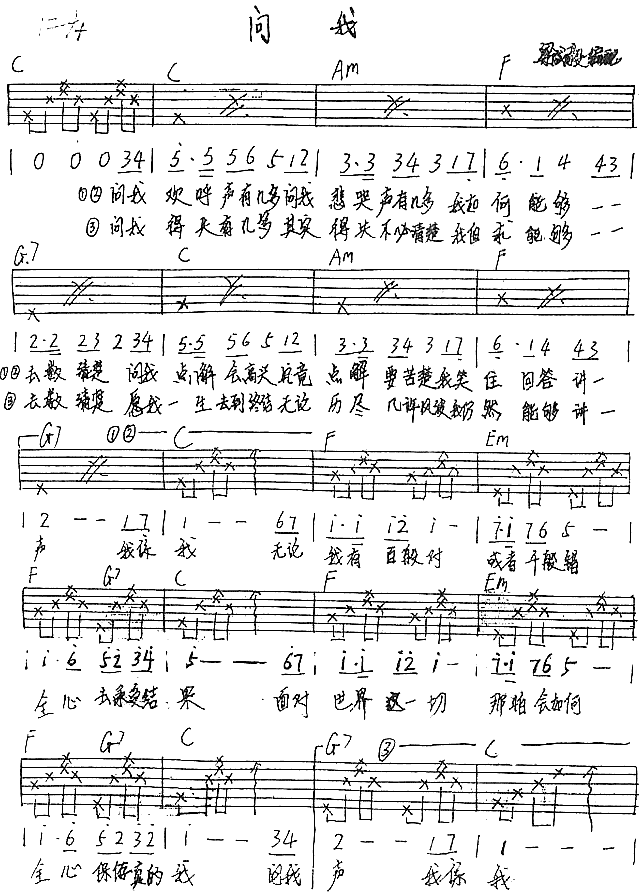 问 我
C C Am F
| 0 0 0 34 | 5·5 56 5 12 | 3·3 34 3 17 | 6·1 4 43
①② 问我 欢呼声有几多问我 悲哭声有几多 我如何能够 — —
③ 问我 得失有几多其实 得失不必清楚 我但求能够 — —
G7 C Am F
| 2·2 23 2 34 | 5·5 56 5 12 | 3·3 34 3 17 | 6·14 43
①② 去数清楚 问我 点解会高兴究竟 点解要苦楚我笑住回答 讲一
③ 去数清楚 愿我一生去到终结无论 历尽几许风波我仍然 能够讲一
G7 ①② C F Em
| 2 — — 17 | 1 — — 67 | i·i i2 i — | 7·i 76 5 — |
声 我系 我 无论 我有百般对 或者千般错
F G7 C F Em
| i·6 52 34 | 5 — — 67 | i·i i2 i — | 7·i 76 5 — |
全心去承受结果 面对 世界一切 那怕会如何
F G7 C G7 ③ C
| i·6 52 32 | i — — 34 | 2 — — 17 | 1 — — — |
全心保存真的我 问我 声 我系 我